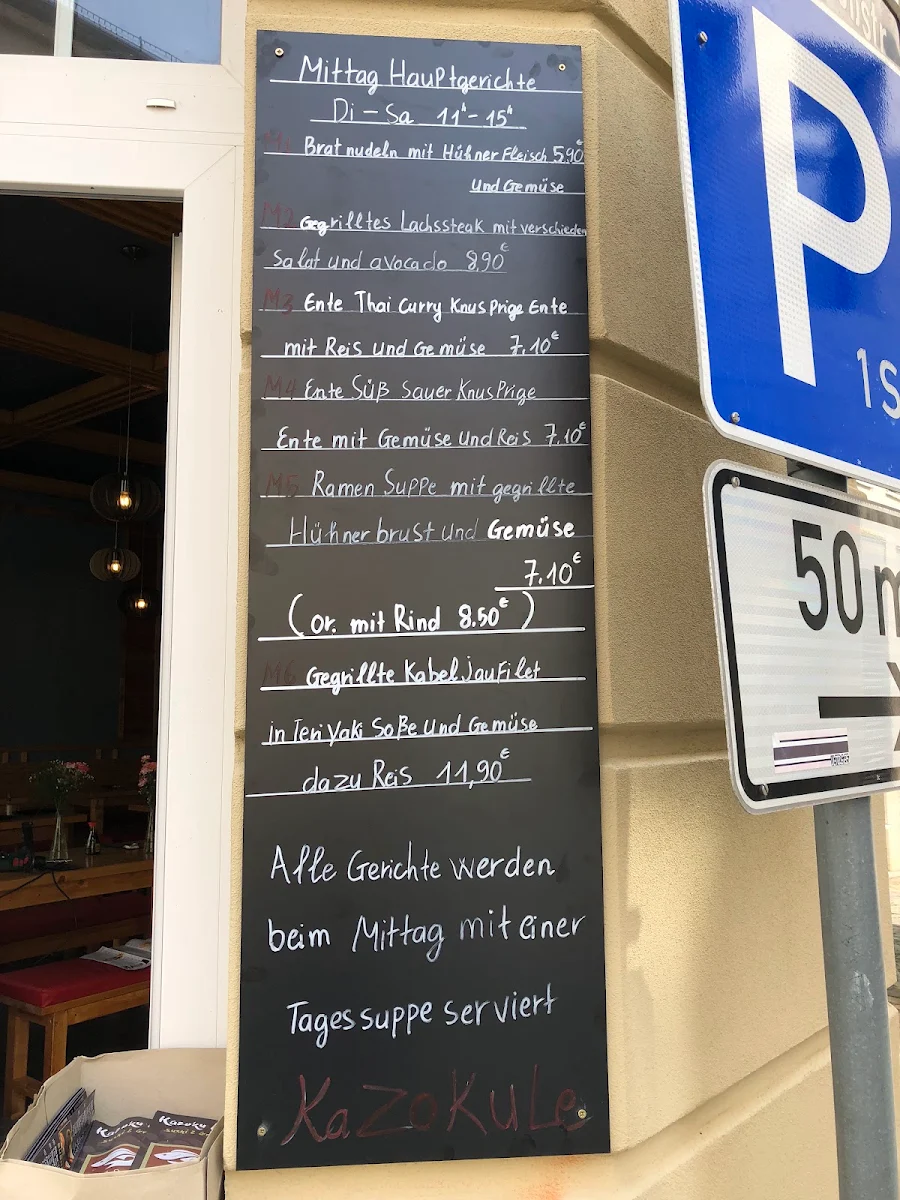 Mittag Hauptgerichte
Di - Sa 11ʰ - 15ʰ
M1 Bratnudeln mit HühnerFleisch 5.90€
und Gemüse
M2 gegrilltes Lachssteak mit verschieden
Salat und avocado 8,90€
M3 Ente Thai Curry Knusprige Ente
mit Reis und Gemüse 7.10€
M4 Ente Süß Sauer Knusprige
Ente mit Gemüse und Reis 7.10€
M5 Ramen Suppe mit gegrillte
Hühnerbrust und Gemüse
7.10€
(or. mit Rind 8.50€)
M6 Gegrillte KabeljauFilet
in TeriYaki Soße und Gemüse
dazu Reis 11,90€
Alle Gerichte werden
beim Mittag mit einer
Tagessuppe serviert
KaZoKuLe
P
50 m
Kazoku
Kazoku